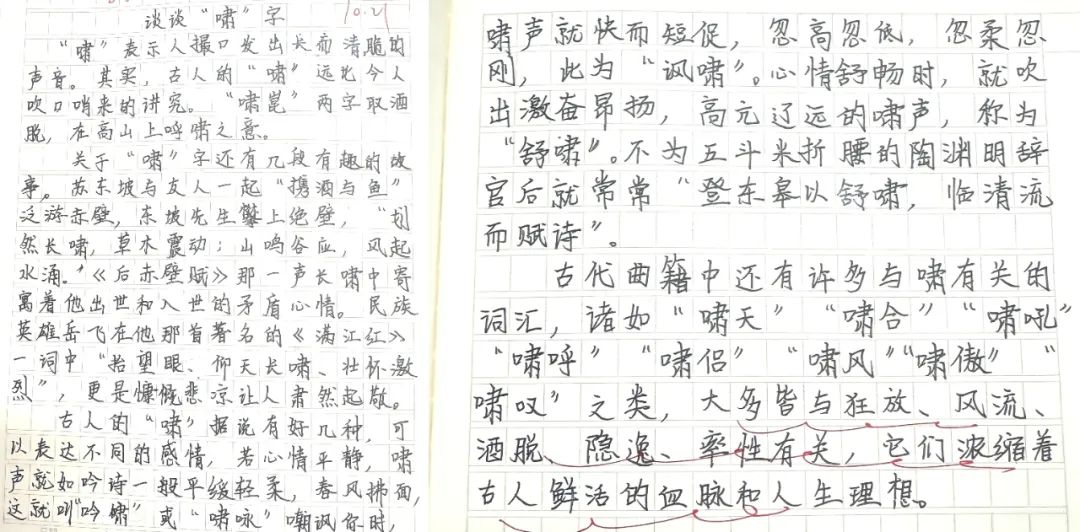 10.21
谈谈“啸”字
“啸”表示人撮口发出长而清脆的
声音。其实，古人的“啸”远比今人
吹口哨来的讲究。“啸崑”两字取洒
脱，在高山上呼啸之意。
关于“啸”字还有几段有趣的故
事。苏东坡与友人一起“携酒与鱼”
泛游赤壁，东坡先生攀上绝壁，“划
然长啸，草木震动；山鸣谷应，风起
水涌。”《后赤壁赋》那一声长啸中寄
寓着他出世和入世的矛盾心情。民族
英雄岳飞在他那首著名的《满江红》
一词中“抬望眼、仰天长啸、壮怀激
烈”，更是慷慨悲凉让人肃然起敬。
古人的“啸”据说有好几种，可
以表达不同的感情，若心情平静，啸
声就如吟诗一般平缓轻柔，春风拂面，
这就叫“吟啸”或“啸咏”嘲讽你时，
啸声就快而短促，忽高忽低，忽柔忽
刚，此为“讽啸”。心情舒畅时，就吹
出激奋昂扬，高亢辽远的啸声，称为
“舒啸”。不为五斗米折腰的陶渊明辞
官后就常常“登东皋以舒啸，临清流
而赋诗”。
古代典籍中还有许多与啸有关的
词汇，诸如“啸天”“啸合”“啸吼”
“啸呼”“啸侣”“啸风”“啸傲”“
啸叹”之类，大多皆与狂放、风流、
洒脱、隐逸、率性有关，它们浓缩着
古人鲜活的血脉和人生理想。